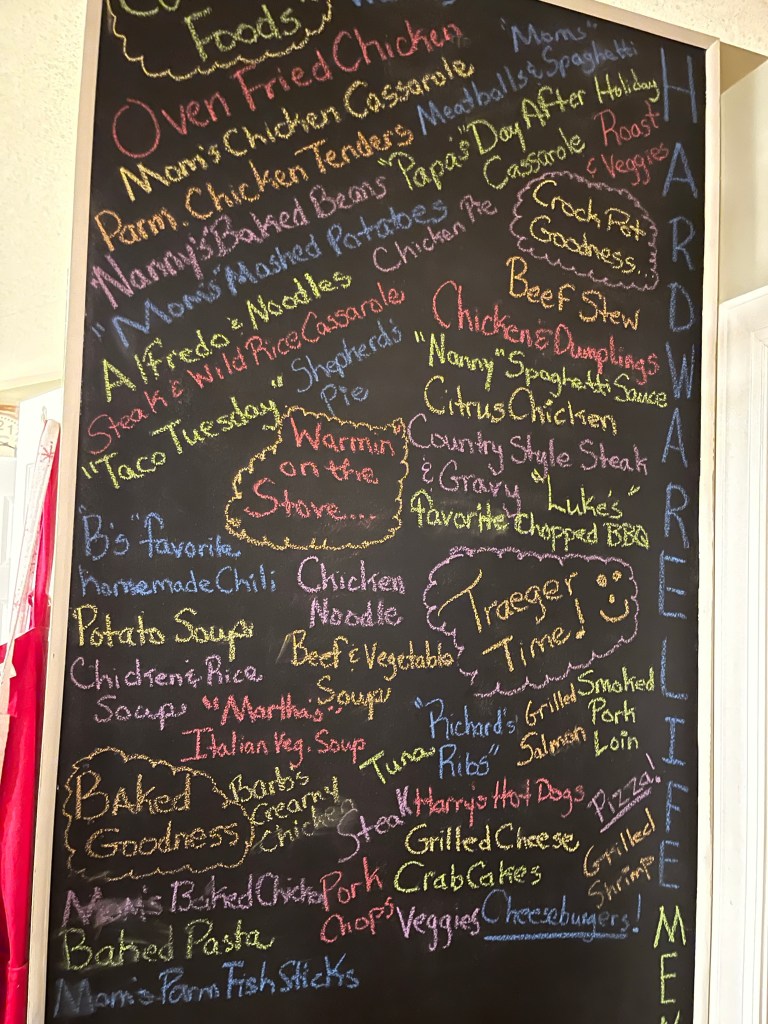 Foods!
Oven Fried Chicken
Mom's Chicken Casserole
Parm. Chicken Tenders
"Nanny's" Baked Beans
"Moms" Mashed Potatoes
Alfredo & Noodles
Steak & Wild Rice Casserole
"Taco Tuesday"
"Moms"
Meatballs & Spaghetti
"Papa's" Day After Holiday
Casserole
Roast
& Veggies
Chicken Pie
Shepherd's
Pie
Crock Pot
Goodness..
Beef Stew
Chicken & Dumplings
"Nanny" Spaghetti Sauce
Citrus Chicken
Country Style Steak
& Gravy
"Luke's"
favorite Chopped BBQ
Warmin
on the
Stove....
"B's" favorite
homemade Chili
Potato Soup
Chicken & Rice
Soup
Chicken
Noodle
Beef & Vegetable
Soup
"Martha's"
Italian Veg. Soup
Traeger
Time!
"Richard's"
Ribs"
Grilled
Salmon
Smoked
Pork
Loin
Tuna
Steak
Harry's Hot Dogs
Pizza!
Grilled Cheese
Crab Cakes
Grilled
Shrimp
Pork
Chops
Veggies
Cheeseburgers!
Baked
Goodness
Barb's
Creamy
Chicken
Mom's Baked Chicken
Baked Pasta
Mom's Parm Fish Sticks
HARDWARE LIFE ME